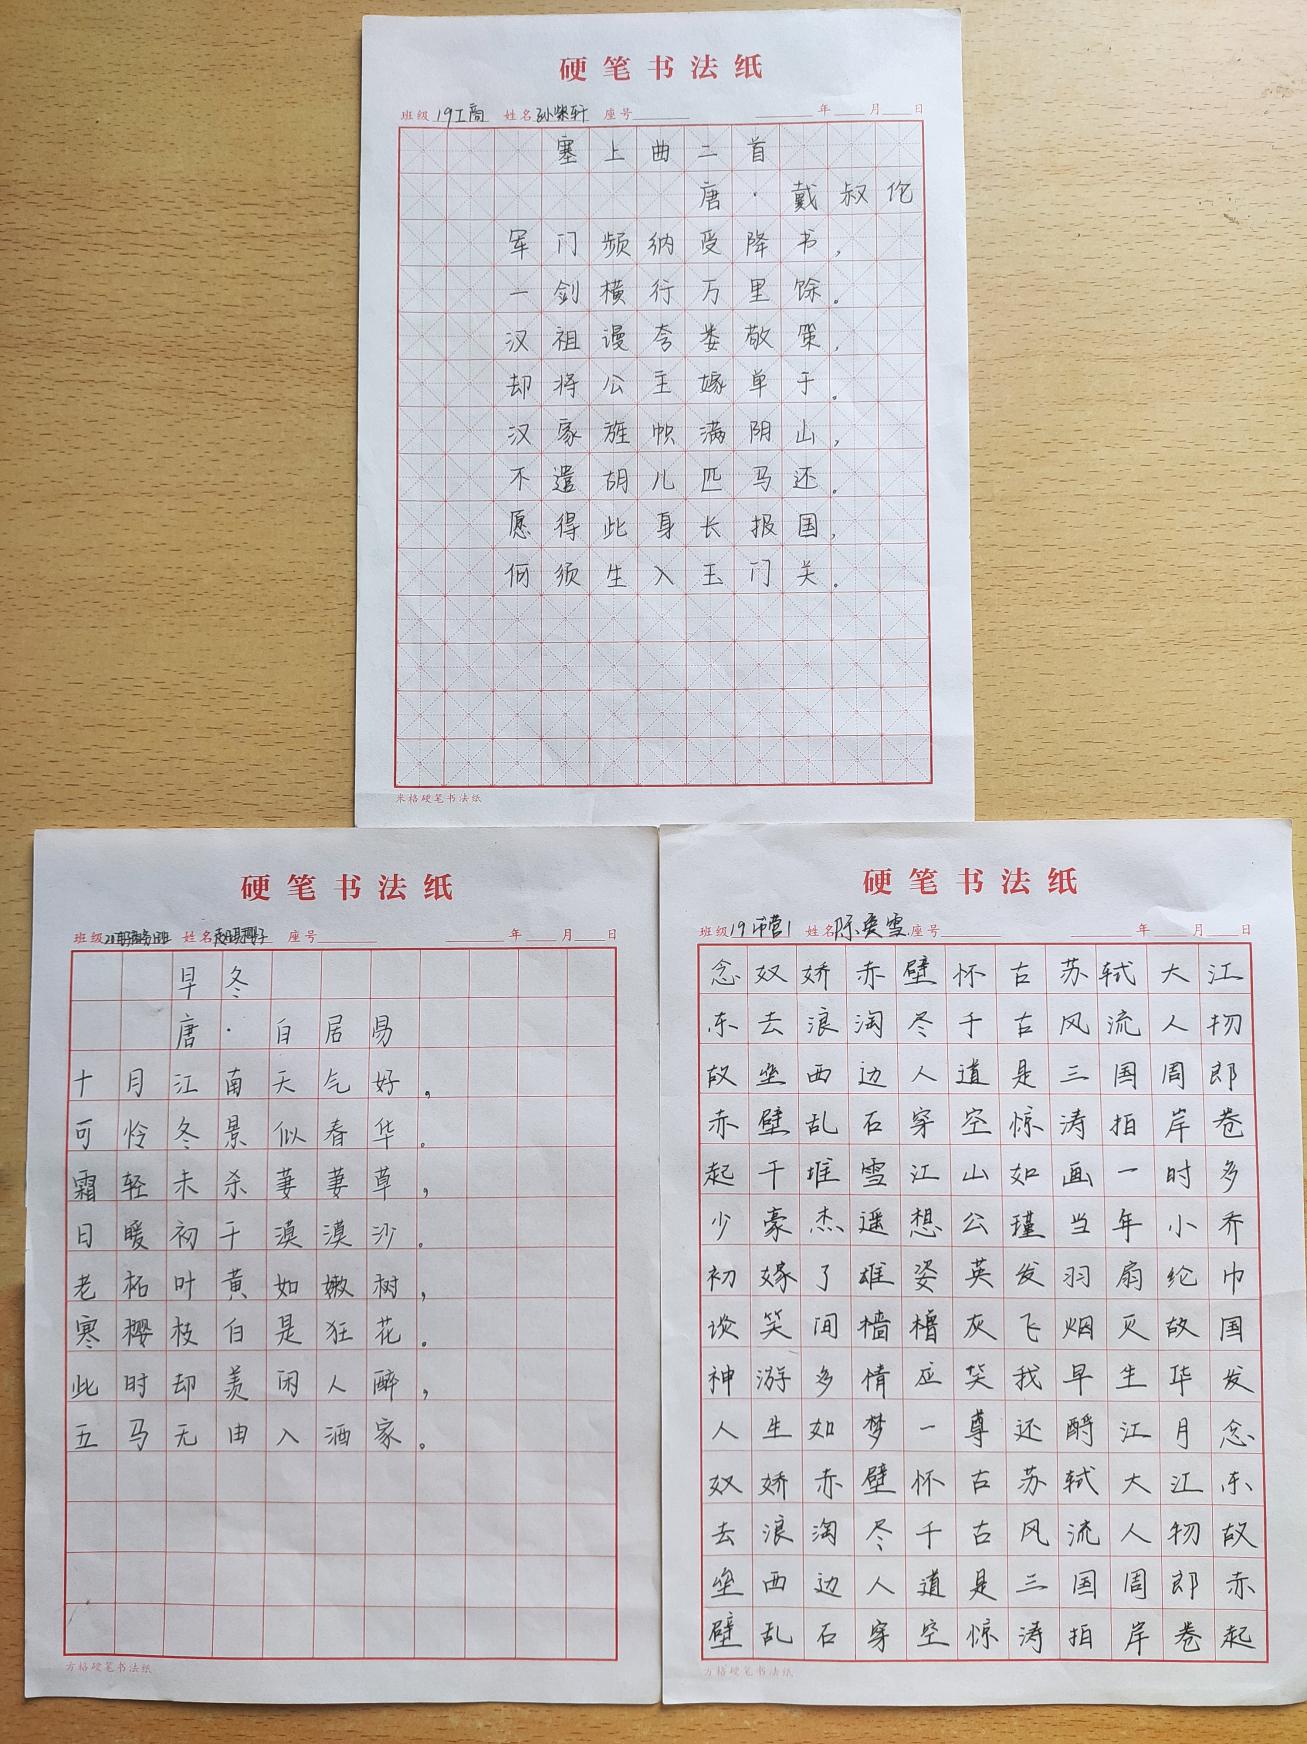 硬笔书法纸
班级 19工商 姓名 孙紫轩 座号 年 月 日
塞上曲二首
唐·戴叔伦
军门频纳受降书，
一剑横行万里馀。
汉祖谩夸娄敬策，
却将公主嫁单于。
汉家旌帜满阴山，
不遣胡儿匹马还。
愿得此身长报国，
何须生入玉门关。
米格硬笔书法纸
硬笔书法纸
班级 姓名 座号 年 月 日
早冬
唐·白居易
十月江南天气好，
可怜冬景似春华。
霜轻未杀萋萋草，
日暖初干漠漠沙。
老柘叶黄如嫩树，
寒樱枝白是狂花。
此时却羡闲人醉，
五马无由入酒家。
方格硬笔书法纸
硬笔书法纸
班级 19市营1 姓名 陈奕雪 座号 年 月 日
念奴娇赤壁怀古苏轼大江
东去浪淘尽千古风流人物
故垒西边人道是三国周郎
赤壁乱石穿空惊涛拍岸卷
起千堆雪江山如画一时多
少豪杰遥想公瑾当年小乔
初嫁了雄姿英发羽扇纶巾
谈笑间樯橹灰飞烟灭故国
神游多情应笑我早生华发
人生如梦一尊还酹江月念
奴娇赤壁怀古苏轼大江东
去浪淘尽千古风流人物故
垒西边人道是三国周郎赤
壁乱石穿空惊涛拍岸卷起
方格硬笔书法纸